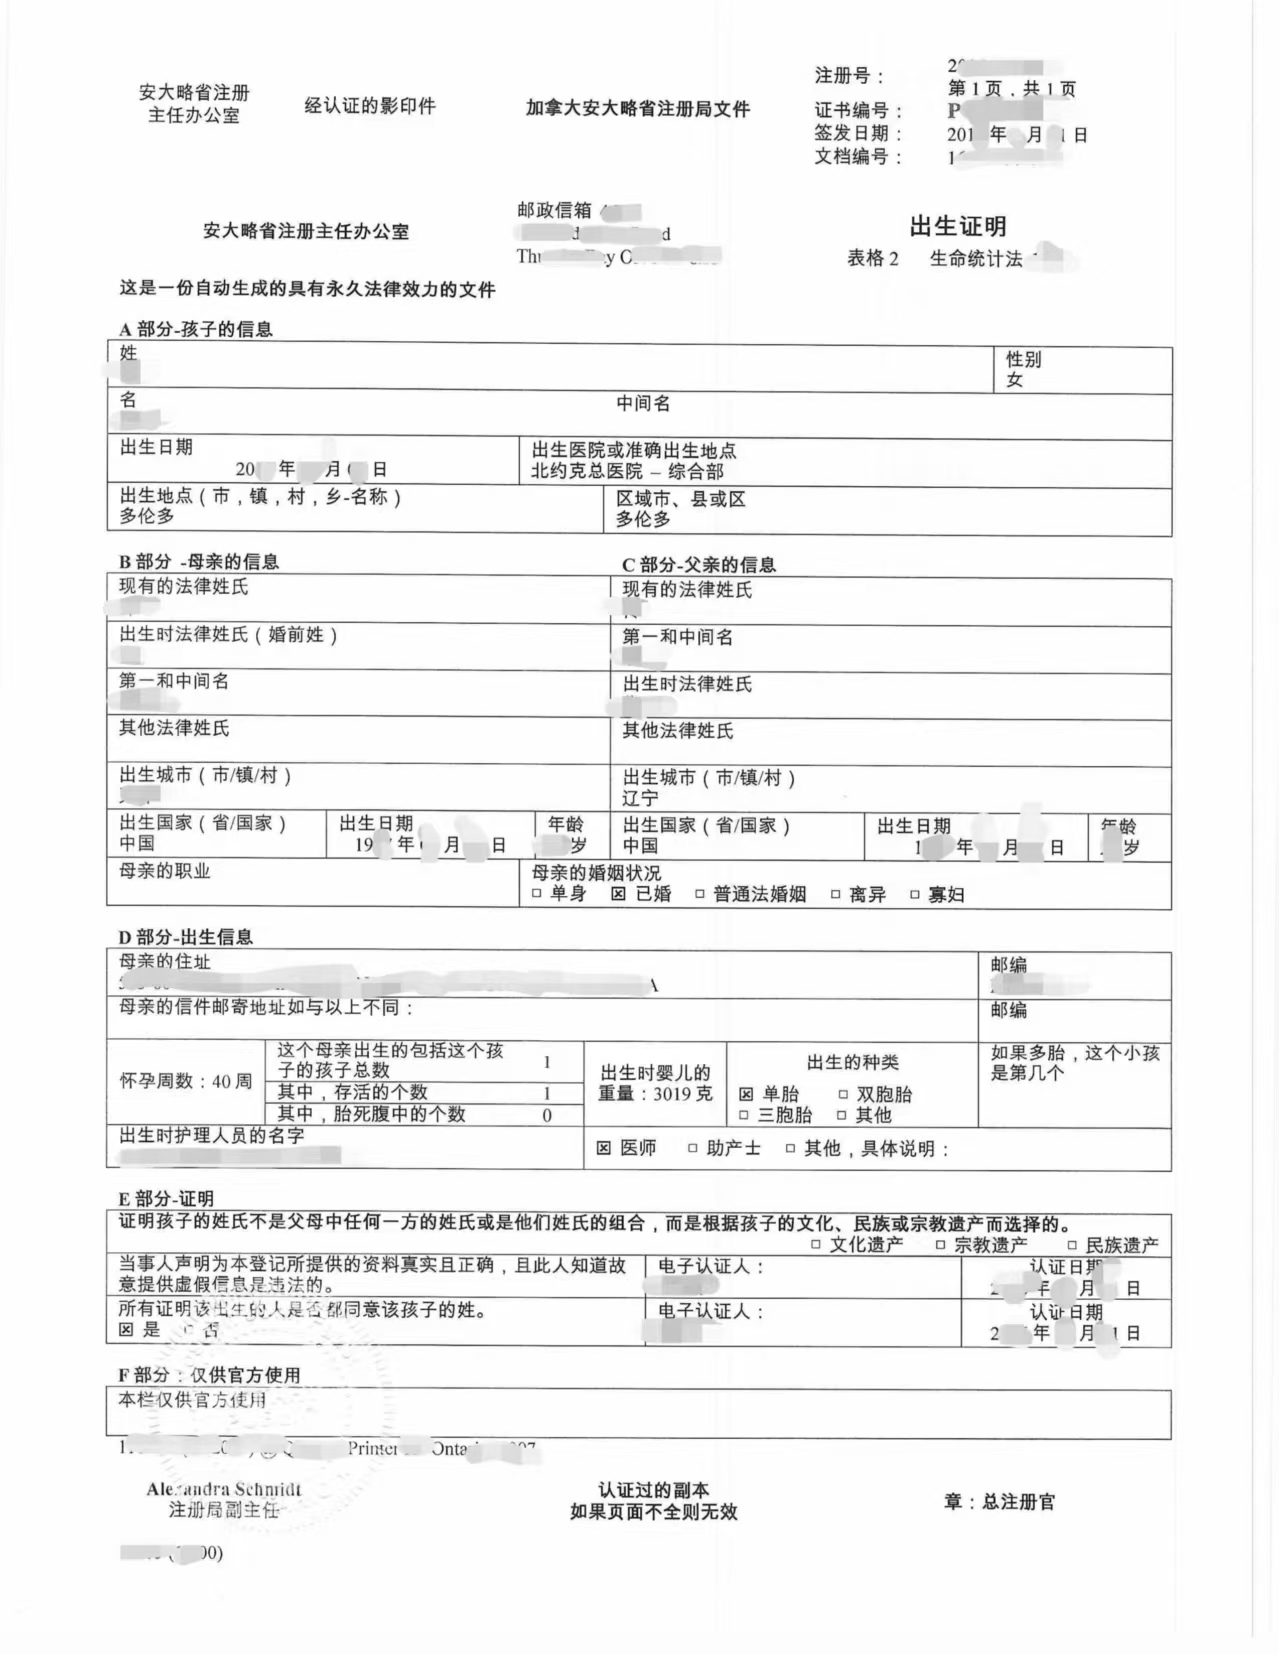 安大略省注册
主任办公室
经认证的影印件
加拿大安大略省注册局文件
注册号：
第1页，共1页
证书编号： P
签发日期： 201 年 月 日
文档编号： 1
安大略省注册主任办公室
邮政信箱
出生证明
表格 2 生命统计法
这是一份自动生成的具有永久法律效力的文件
A 部分-孩子的信息
姓
性别
女
名
中间名
出生日期
20 年 月 日
出生医院或准确出生地点
北约克总医院 – 综合部
出生地点（市，镇，村，乡-名称）
多伦多
区域市、县或区
多伦多
B 部分 -母亲的信息
C 部分-父亲的信息
现有的法律姓氏
现有的法律姓氏
出生时法律姓氏（婚前姓）
第一和中间名
第一和中间名
出生时法律姓氏
其他法律姓氏
其他法律姓氏
出生城市（市/镇/村）
出生城市（市/镇/村）
辽宁
出生国家（省/国家）
中国
出生日期
19 年 月 日
年龄
岁
出生国家（省/国家）
中国
出生日期
1 年 月 日
年龄
岁
母亲的职业
母亲的婚姻状况
□ 单身 ☒ 已婚 □ 普通法婚姻 □ 离异 □ 寡妇
D 部分-出生信息
母亲的住址
A
邮编
母亲的信件邮寄地址如与以上不同：
邮编
怀孕周数：40 周
这个母亲出生的包括这个孩
子的孩子总数 1
其中，存活的个数 1
其中，胎死腹中的个数 0
出生时婴儿的
重量：3019 克
出生的种类
☒ 单胎 □ 双胞胎
□ 三胞胎 □ 其他
如果多胎，这个小孩
是第几个
出生时护理人员的名字
☒ 医师 □ 助产士 □ 其他，具体说明：
E 部分-证明
证明孩子的姓氏不是父母中任何一方的姓氏或是他们姓氏的组合，而是根据孩子的文化、民族或宗教遗产而选择的。
□ 文化遗产 □ 宗教遗产 □ 民族遗产
当事人声明为本登记所提供的资料真实且正确，且此人知道故
意提供虚假信息是违法的。
电子认证人：
认证日期
2 年 月 日
所有证明该出生的人是否都同意该孩子的姓。
☒ 是 □ 否
电子认证人：
认证日期
2 年 月 1日
F 部分：仅供官方使用
本栏仅供官方使用
Printer
Alexandra Schmidt
注册局副主任
认证过的副本
如果页面不全则无效
章：总注册官